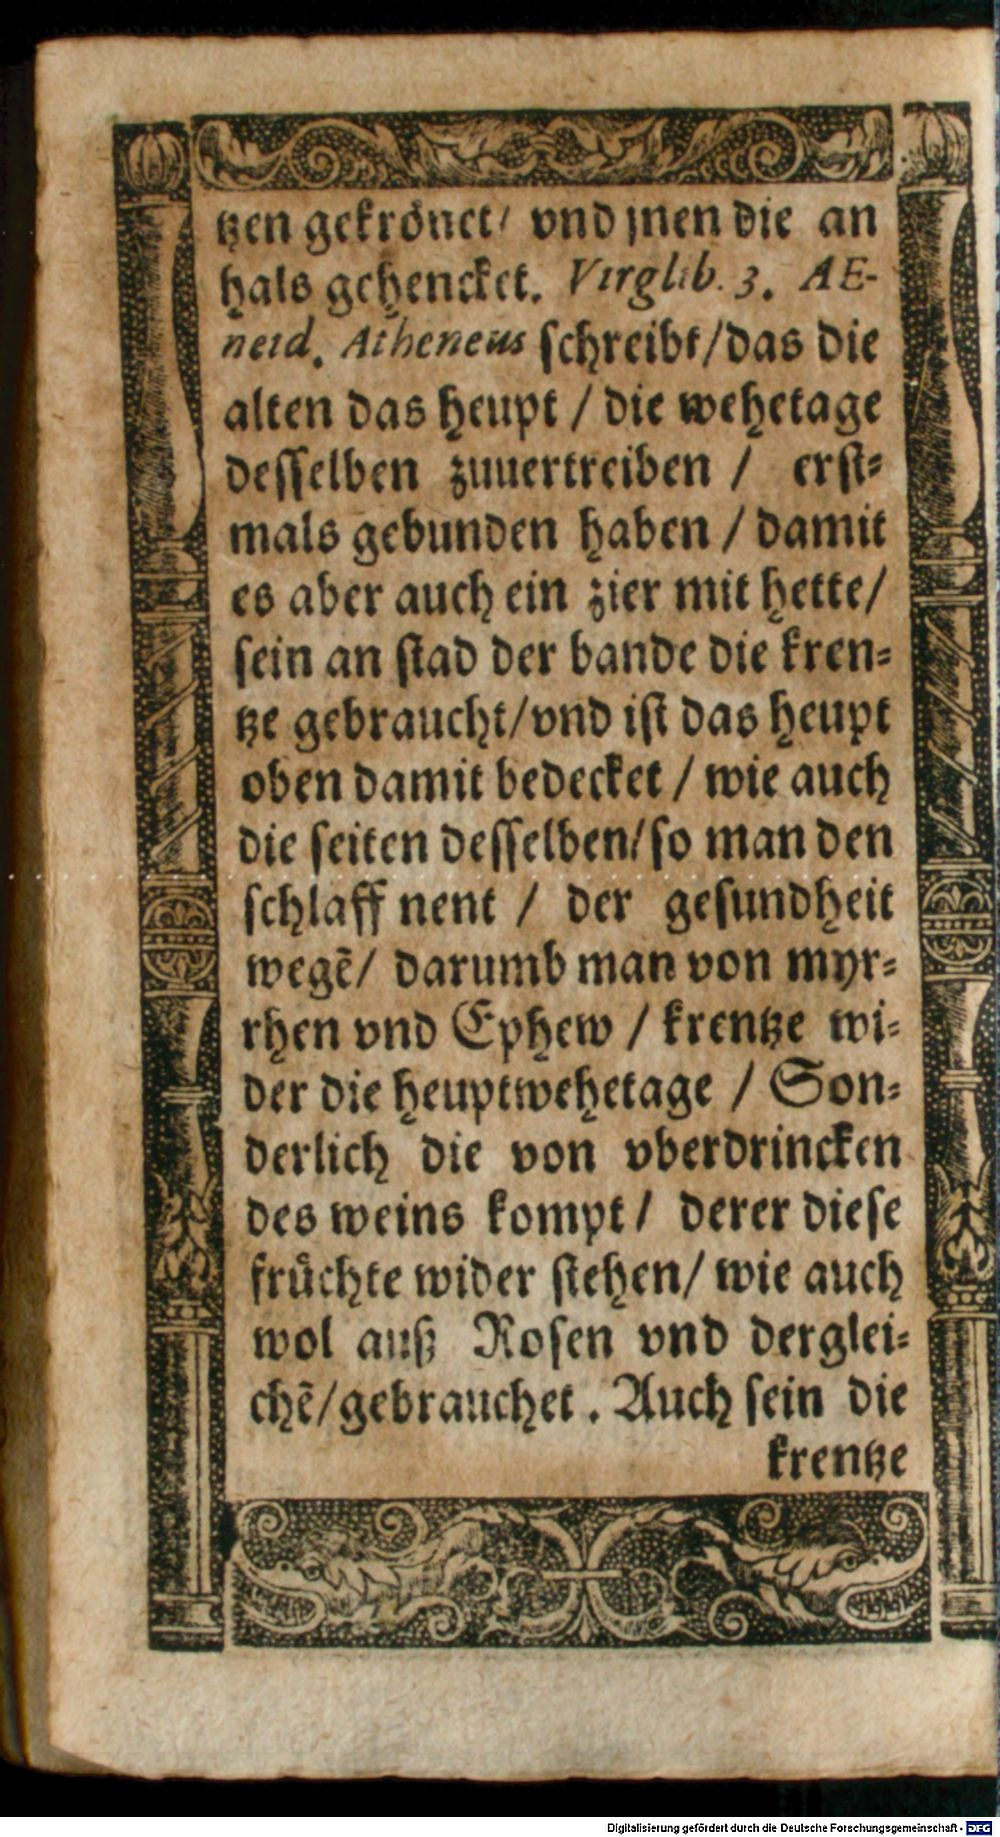 tzen gekrönet/ vnd jnen die an
hals gehencket. Virg lib. 3. AE-
neid. Atheneus schreibt/das die
alten das heupt / die wehetage
desselben zuuertreiben / erst-
mals gebunden haben / damit
es aber auch ein zier mit hette/
sein an stad der bande die kren-
tze gebraucht/vnd ist das heupt
oben damit bedecket / wie auch
die seiten desselben/so man den
schlaff nent / der gesundheit
wegẽ/ darumb man von myr-
rhen vnd Ephew / krentze wi-
der die heuptwehetage / Son-
derlich die von vberdrincken
des weins kompt/ derer diese
früchte wider stehen/ wie auch
wol auß Rosen vnd derglei-
chẽ/gebrauchet. Auch sein die
krentze
Digitalisierung gefördert durch die Deutsche Forschungsgemeinschaft - DFG